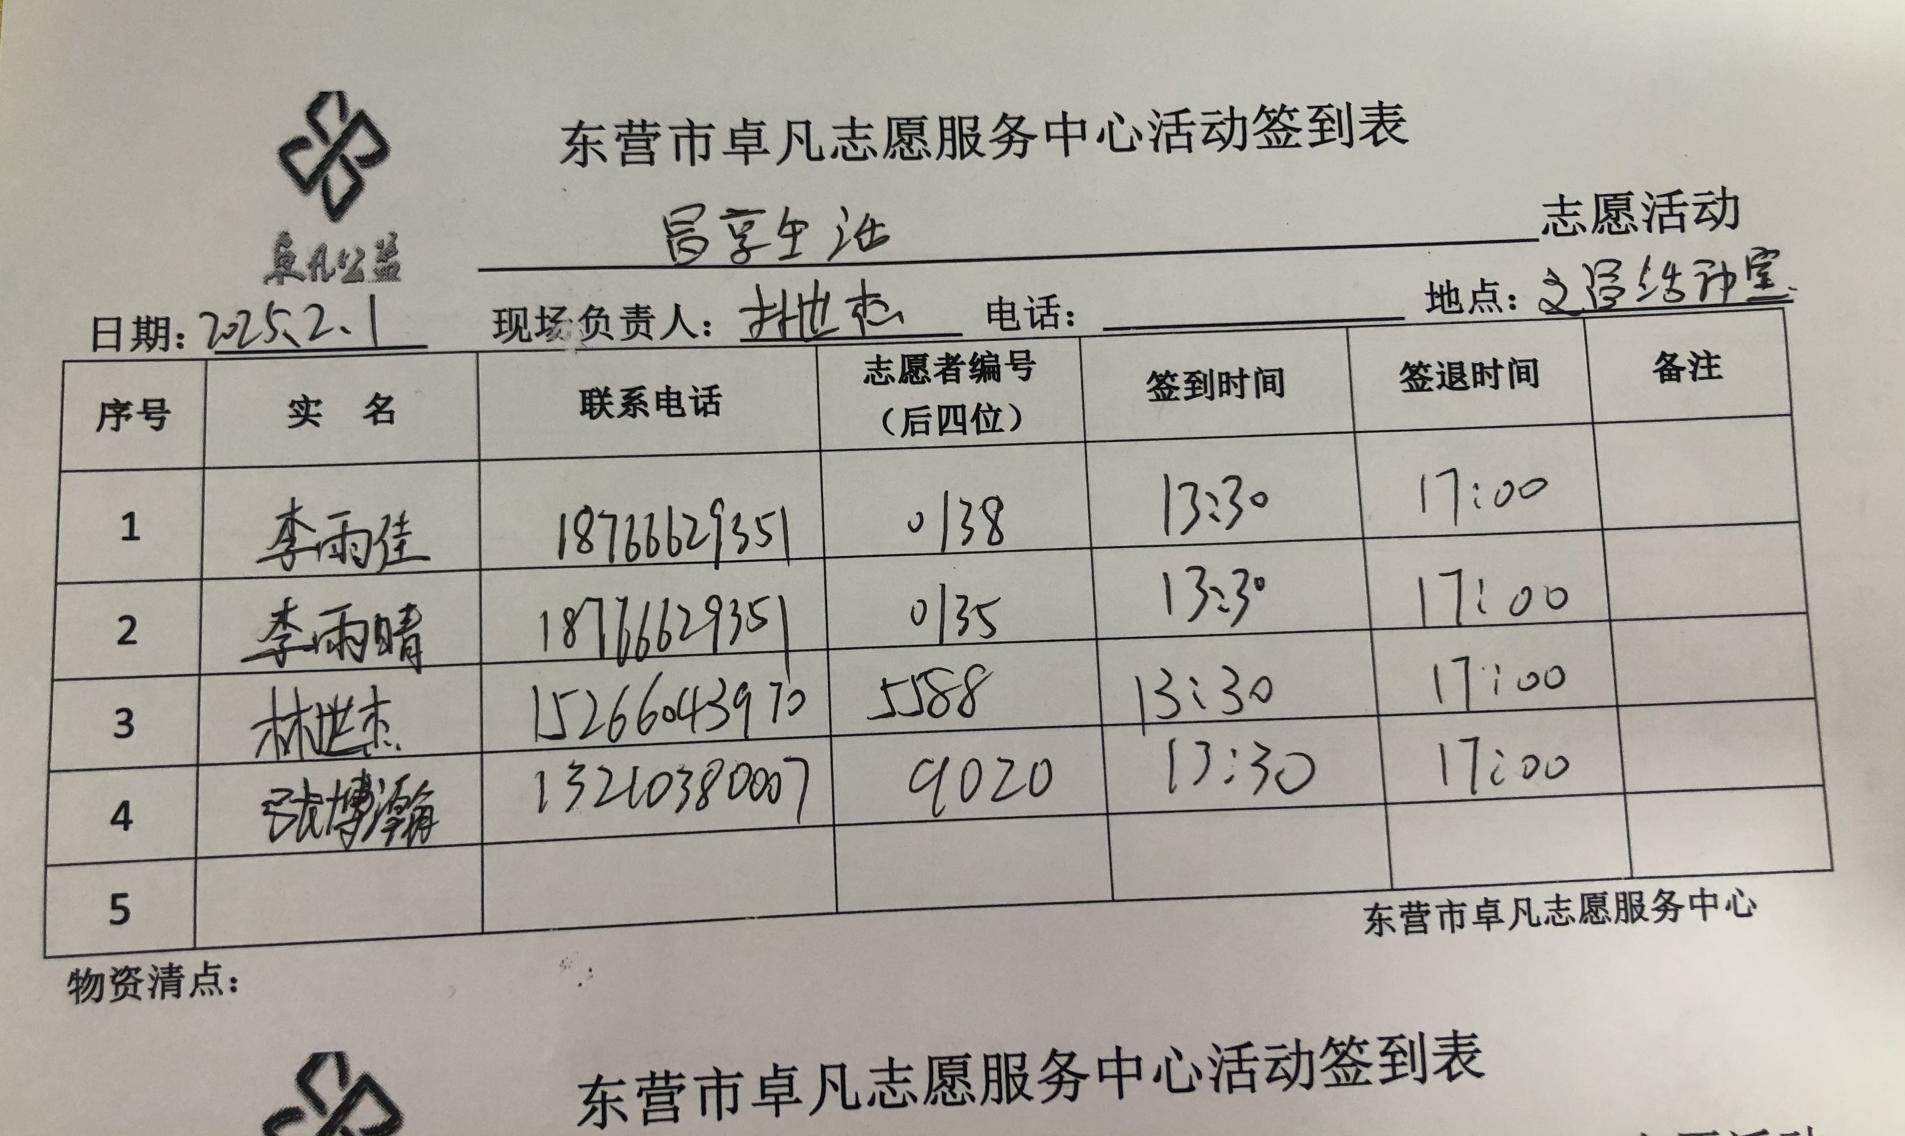 东营市卓凡志愿服务中心活动签到表
卓凡公益
昌享生活 志愿活动
日期：2025.2.1 现场负责人：林世杰 电话： 地点：文昌活动室
序号 实 名 联系电话 志愿者编号（后四位） 签到时间 签退时间 备注
1 李雨佳 18766629351 0138 13:30 17:00
2 李雨晴 18766629351 0135 13:30 17:00
3 林世杰 15266043970 5588 13:30 17:00
4 张博瀚 13210380007 9020 13:30 17:00
5
东营市卓凡志愿服务中心
物资清点：
东营市卓凡志愿服务中心活动签到表